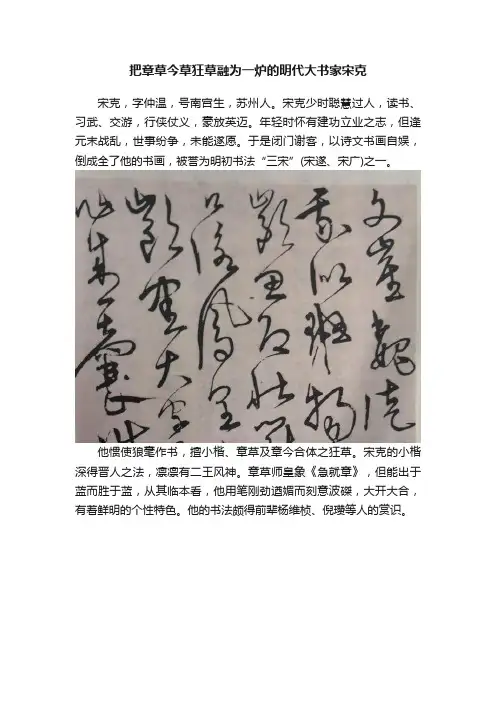 把章草今草狂草融为一炉的明代大书家宋克
宋克，字仲温，号南宫生，苏州人。宋克少时聪慧过人，读书、
习武、交游，行侠仗义，豪放英迈。年轻时怀有建功立业之志，但逢
元末战乱，世事纷争，未能遂愿。于是闭门谢客，以诗文书画自娱，
倒成全了他的书画，被誉为明初书法“三宋”(宋遂、宋广)之一。
文崔魏徒
我似班揚
齡思即壯開
口詠鳳皇
齡書大字
作成一囊
他惯使狼毫作书，擅小楷、章草及章今合体之狂草。宋克的小楷
深得晋人之法，凛凛有二王风神。章草师皇象《急就章》，但能出于
蓝而胜于蓝，从其临本看，他用笔刚劲遒媚而刻意波磔，大开大合，
有着鲜明的个性特色。他的书法颇得前辈杨维桢、倪瓒等人的赏识。